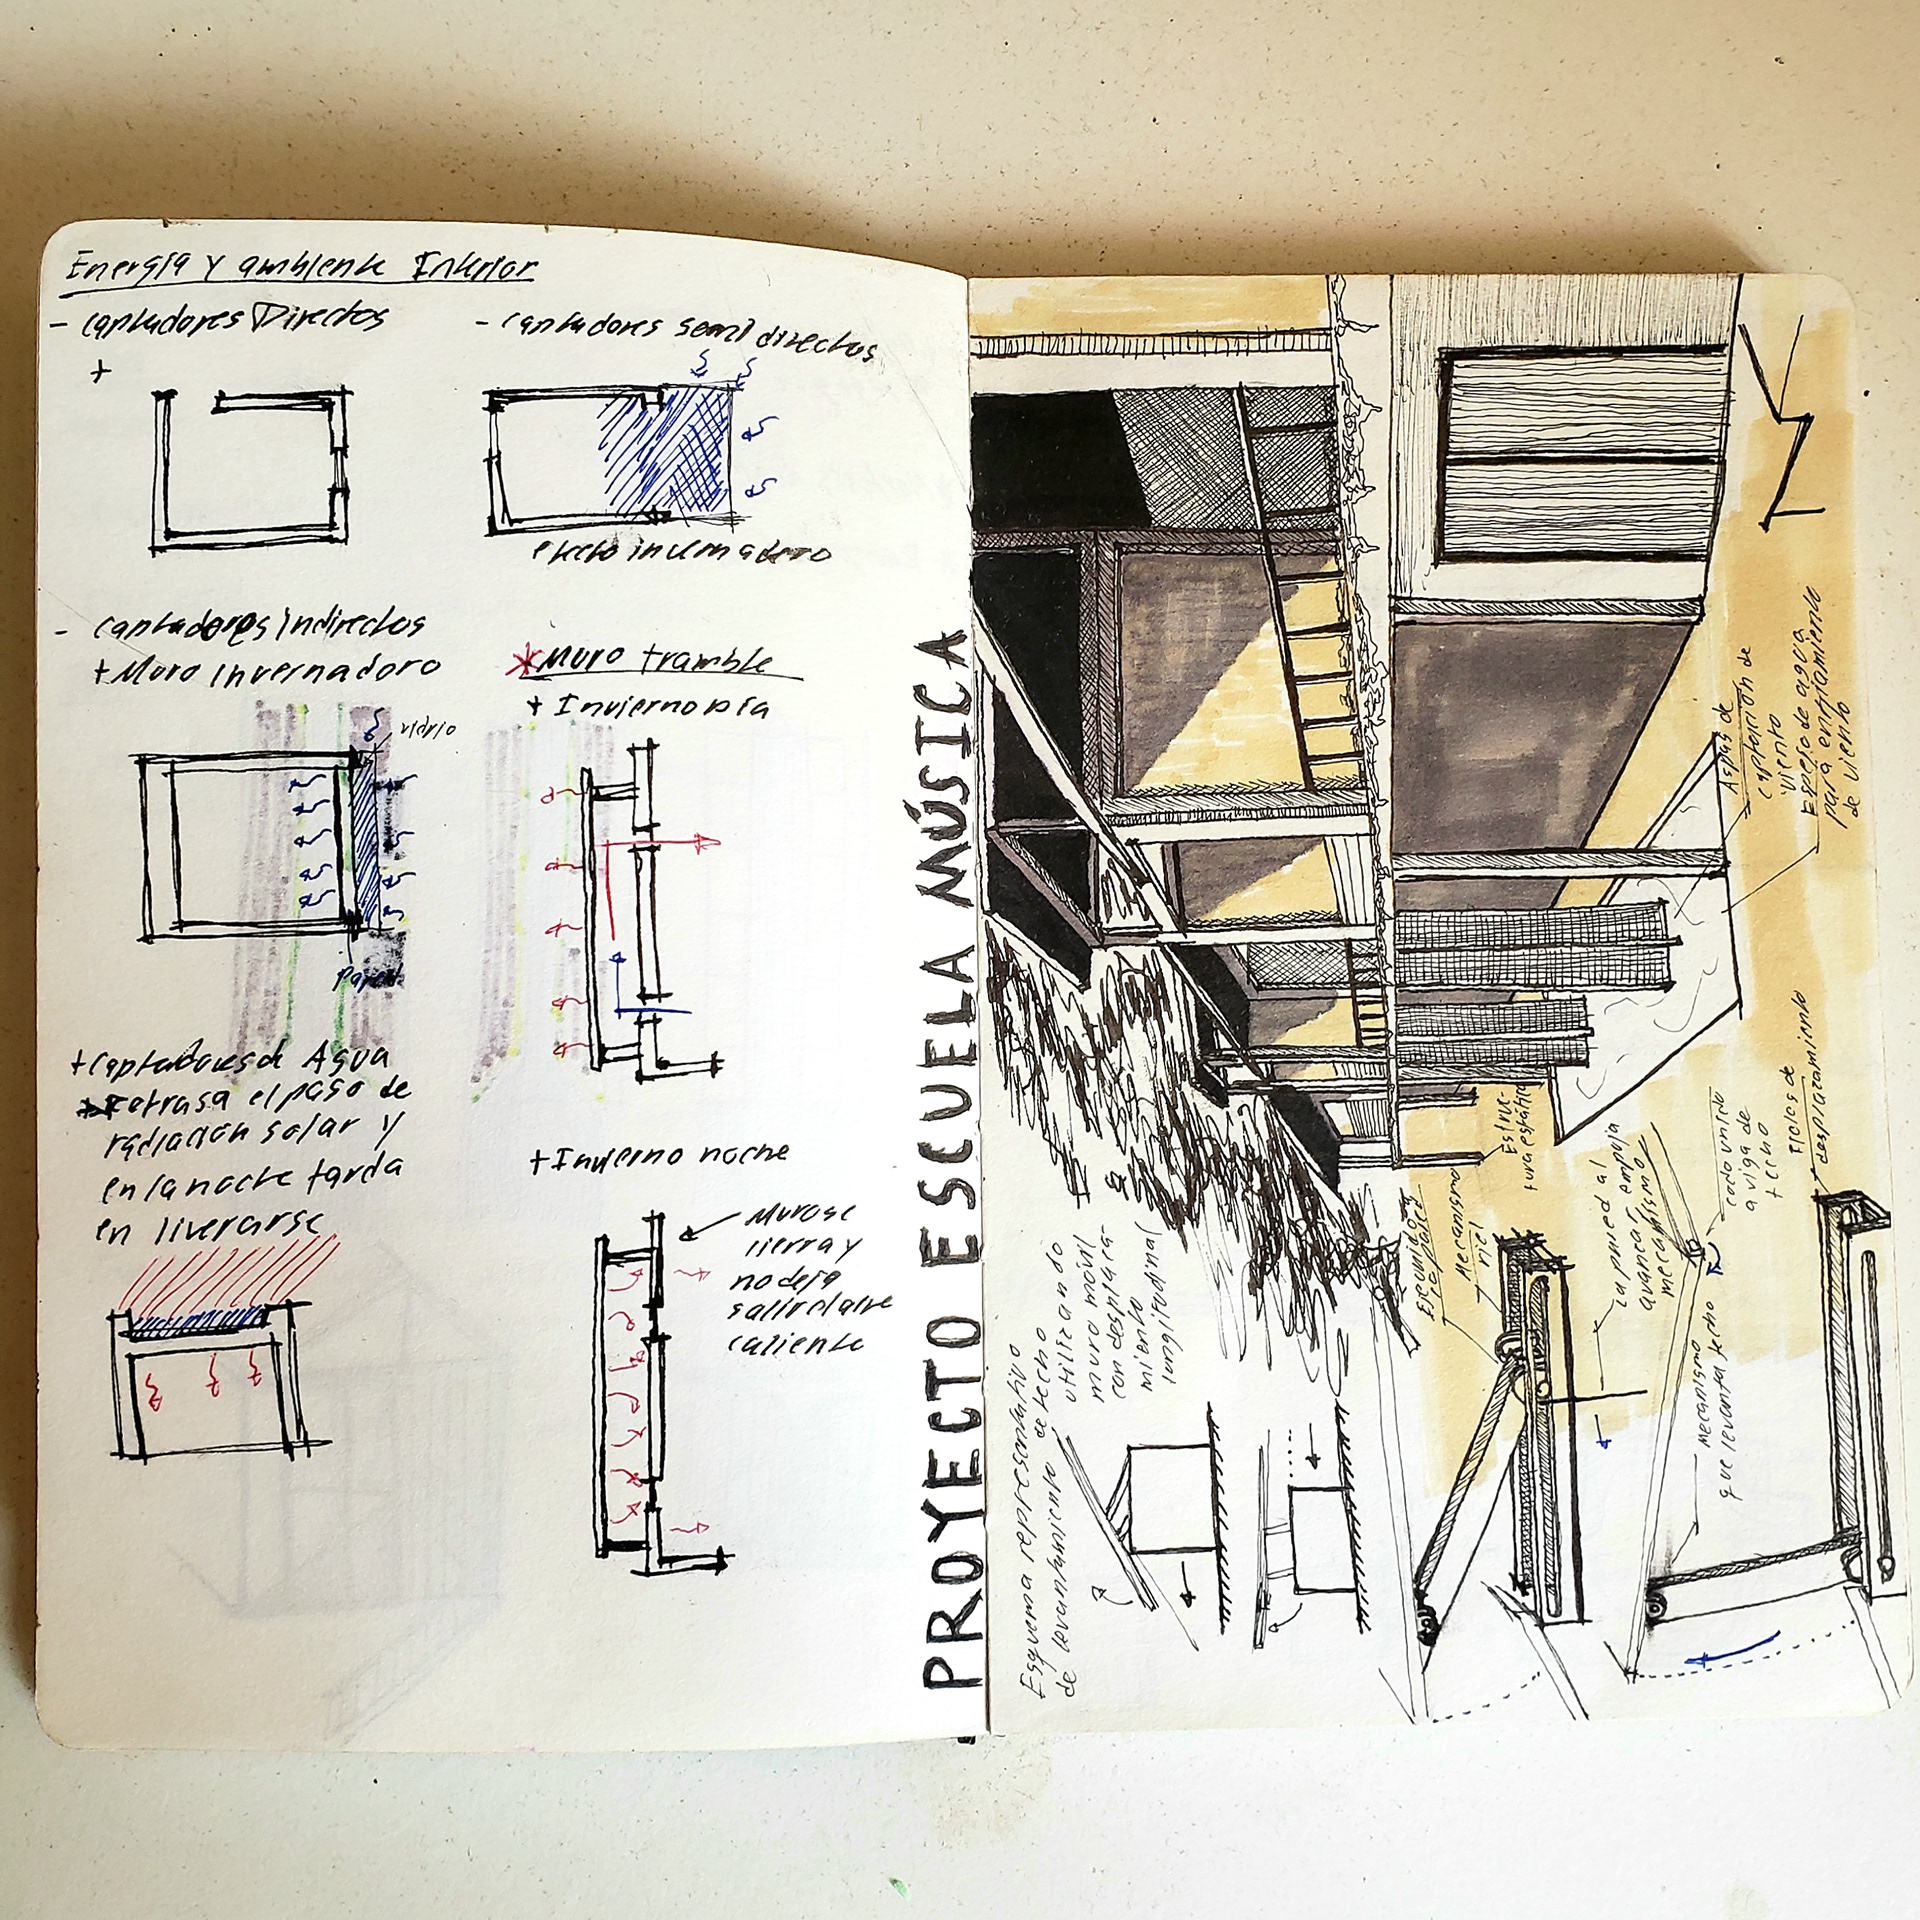 Energía y ambiente Interior
- captadores Directos
+
- captadores semi directos
efecto invernadero
- captadores Indirectos
+ Muro Invernadoro
vidrio
pared
* Muro tramble
+ Invierno Día
+ captadores de Agua
retrasa el paso de
radiación solar y
en la noche tarda
en liverarse
+ Invierno noche
Muro se
cierra y
no deja
salir el aire
caliente
PROYECTO ESCUELA MÚSICA
Esquema representativo
de levantamiento de techo
utilizando
muro móvil
con desplaza-
miento
longitudinal
Mecanismo
riel
Estruc-
tura estática
La pared al
avanzar empuja
mecanismo
Mecanismo
que levanta techo
codo unido
a viga de
techo
Rieles de
desplazamiento
Aspas de
captación de
viento
Espejo de agua
para enfriamiento
de viento